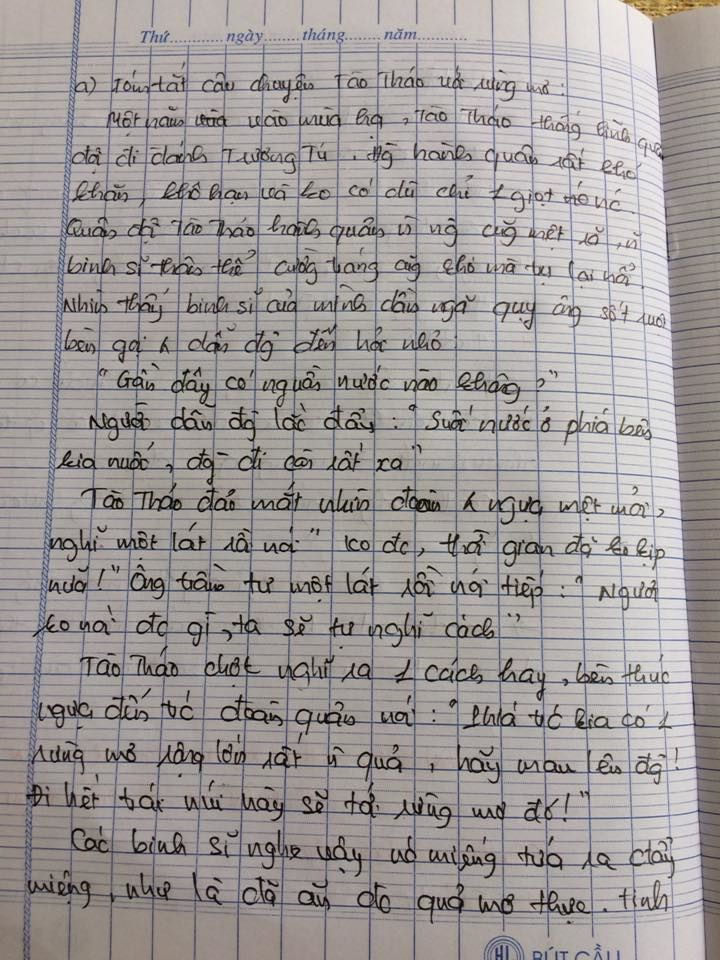 Thứ............ngày........tháng.......năm............
a) Tóm tắt câu chuyện Tào Tháo với rừng mơ:
Một năm vào mùa hạ, Tào Tháo thống lĩnh quân
đội đi đánh Trương Tú. hành quân rất khó
khăn, khô hạn và ko có dù chỉ 1 giọt nc.
Quân đội Tào Tháo hành quân cũg mệt rã,
binh sĩ thân thể cường tráng cũg khó mà trụ lại nổi.
Nhìn thấy binh sĩ của mình dần ngã quỵ ông sốt ruột
bèn gọi dẫn đg đến hỏi nhỏ:
"Gần đây có nguồn nước nào không?"
Người dẫn đg lắc đầu: "Suối nước ở phía bên
kia nước, đg đi còn rất xa"
Tào Tháo đảo mắt nhìn đoàn ngựa mệt mỏi,
nghĩ một lát rồi nói "ko đc, thời gian đã ko kịp
nữa!" Ông trầm tư một lát rồi nói tiếp: "Ngươi
ko nói đc gì, ta sẽ tự nghĩ cách"
Tào Tháo chợt nghĩ ra 1 cách hay, bèn thúc
ngựa đến trc đoàn quân nói: "Phía trc kia có 1
rừng mơ rộng lớn rất quả, hãy mau lên đg!
Đi hết trái núi này sẽ tới rừng mơ đó!"
Các binh sĩ nghe vậy nc miếng túa ra đầy
miệng, như là đã ăn đc quả mơ thực. tinh
BÚT CẦU